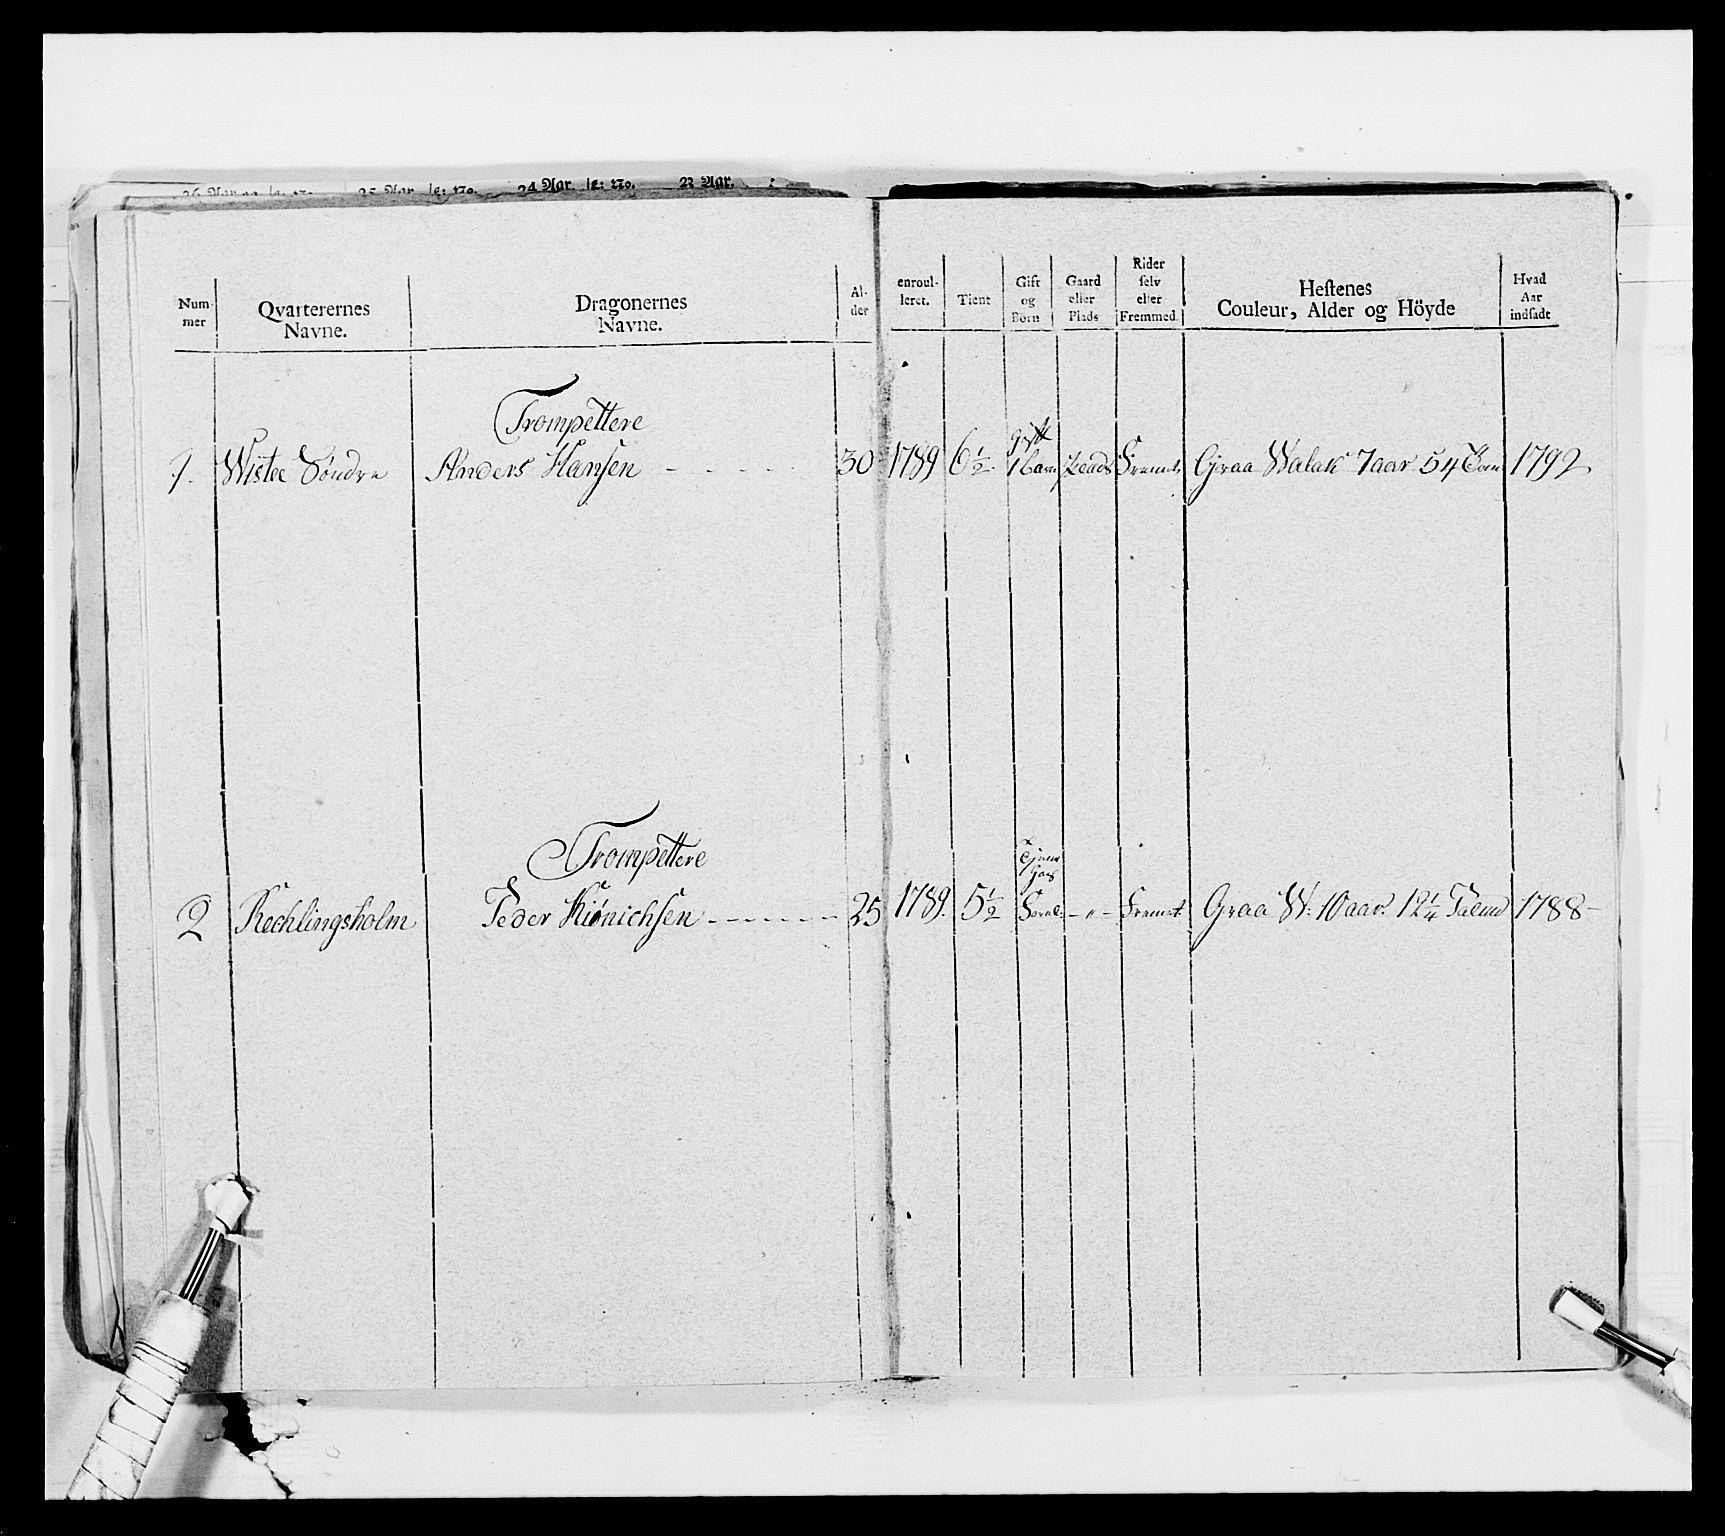 25 Aar. 24 Aar. No. 23 Aar.
Num-
mer
Qvarterernes
Navne.
Dragonernes
Navne.
Al-
der
enroul-
leret.
Tient
Gift
og
Börn
Gaard
eller
Plads
Rider
selv
eller
Fremmed.
Hestenes
Couleur, Alder og Höyde
Hvad
Aar
indsadt
Trompettere
1. Wistee Söndre Anders Hansen - - - - - 30 1789 6½ gift 1 barn Plads Fremt Graa Walak 7 aar 54 Tom 1792
Trompettere
2 Rechlingsholm Peder Kiönichsen - - - - - - 25 1789. 5½ - " - Fremt. Graa W: 10 aar. 12¼ 1788 -